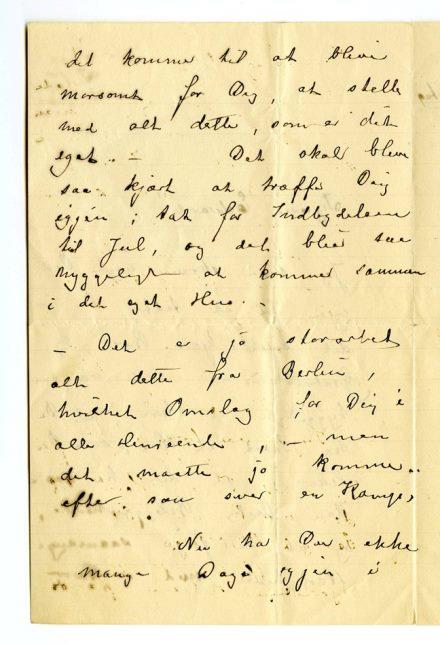 det kommer til at blive
morsomt for Dig, at stelle
med alt dette, som er dit
eget. – Det skal blive
saa kjært at træffe Dig
igjen; tak for Indbydelsen
til Jul, og det bliver saa
hyggeligt at komme sammen
i det eget Hus. –
– Det er jo storartet
alt dette fra Berlin,
hvilket Omslag for Dig i
alle Henseender, – men
det maatte jo komme
efter saa svær en Kamp.
Nu har Du ikke
mange Dage igjen i